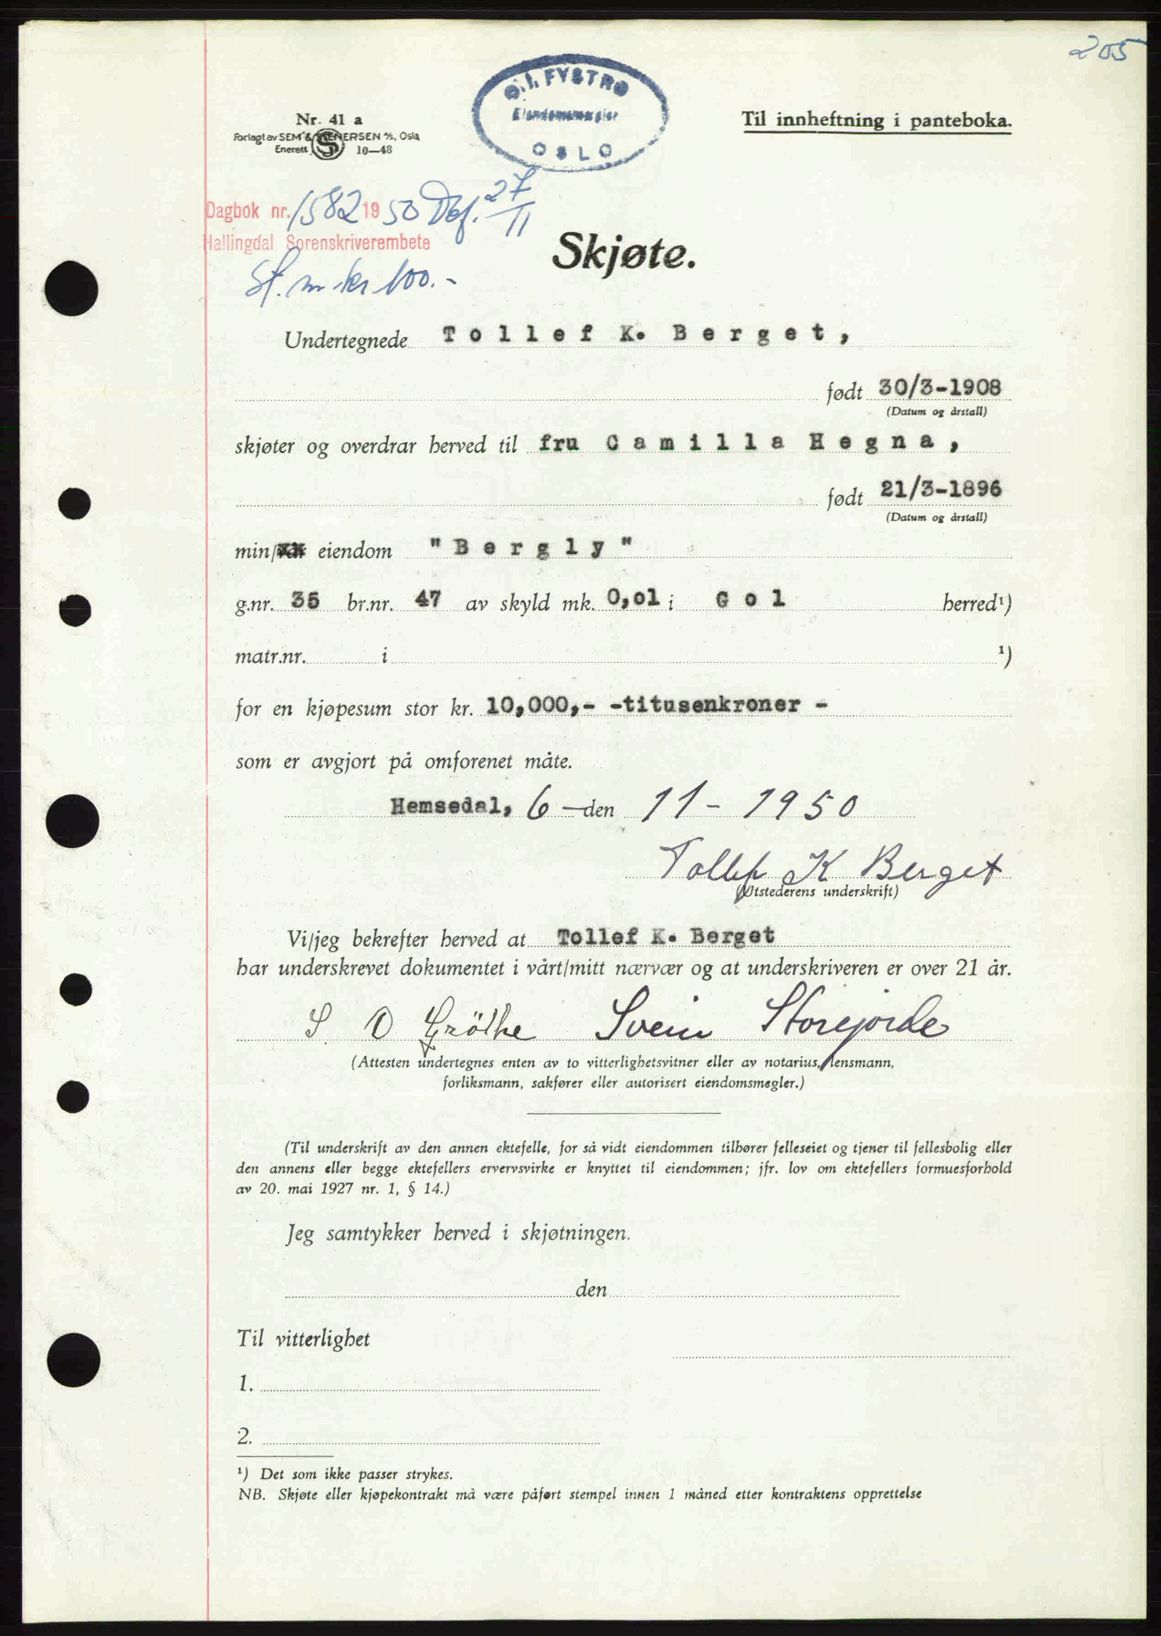 205
Ø.I. FYSTRØ
Eiendomsmegler
OSLO
Nr. 41 a
Forlagt av SEM & STENERSEN A/S, Oslo
Enerett 10—48
Til innheftning i panteboka.
Dagbok nr. 1582 1950 Dbf. 27/11
Hallingdal Sorenskriverembete
St. m. kr 100.-
Skjøte.
Undertegnede Tollef K. Berget,
født 30/3-1908
(Datum og årstall)
skjøter og overdrar herved til fru Camilla Hegna,
født 21/3-1896
(Datum og årstall)
min/ eiendom "Bergly"
g.nr. 35 br.nr. 47 av skyld mk. 0,01 i Gol herred¹)
matr.nr. i ¹)
for en kjøpesum stor kr. 10,000,- -titusenkroner -
som er avgjort på omforenet måte.
Hemsedal, 6 - den 11 - 1950
Tollef K Berget
(Utstederens underskrift)
Vi/jeg bekrefter herved at Tollef K. Berget
har underskrevet dokumentet i vårt/mitt nærvær og at underskriveren er over 21 år.
S. O Grøthe Svein Storejorde
(Attesten undertegnes enten av to vitterlighetsvitner eller av notarius, lensmann,
forliksmann, sakfører eller autorisert eiendomsmegler.)
(Til underskrift av den annen ektefelle, for så vidt eiendommen tilhører felleseiet og tjener til fellesbolig eller
den annens eller begge ektefellers ervervsvirke er knyttet til eiendommen; jfr. lov om ektefellers formuesforhold
av 20. mai 1927 nr. 1, § 14.)
Jeg samtykker herved i skjøtningen.
den
Til vitterlighet
1.
2.
¹) Det som ikke passer strykes.
NB. Skjøte eller kjøpekontrakt må være påført stempel innen 1 måned etter kontraktens opprettelse